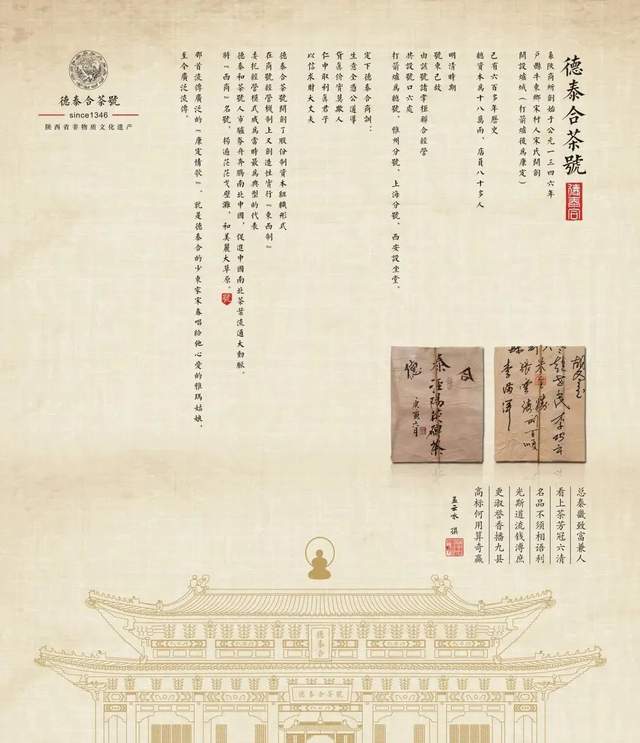 德泰合茶號
since1346
陕西省非物质文化遗产
德泰合茶號
系陝商所創始于公元一三四六年
戶縣牛東鄉宋村人宋氏開創
開設爐城（打箭爐後爲康定）
已有六百多年歷史
總資本爲十八萬兩，店員八十多人
明清時期
號東已故
由該號諸掌櫃聯合經營
共設號口六處
打箭爐爲總號，雅州分號、上海分號、西安設坐堂、
定下德泰合商訓：
生意全憑公道導
貨真價實莫欺人
仁中取利真君子
以信求財大丈夫
德泰合茶號開創了股份制資本組織形式
在商號經營機制上又創造性實行“東西制”
委托經營模式成爲當時最爲典型的代表
德泰和茶號人市驢夯舟奔騰南北中國，促進中國南北茶葉流通大動脈
將“西商”名號，揚遍茫茫戈壁灘，和美麗大草原。
那首流傳廣泛的“康定情歌”，就是德泰合的少東家宋春唱給他心愛的雅瑪姑娘，
至今廣泛流傳。
秦涇陽 磚茶
李
总秦畿致富兼人
看上茶芳冠六清
名品不须相语利
光斯道流钱溥庶
更淑誉香播九县
高标何用算奇赢
孟云水 撰
德泰合
德泰合茶號